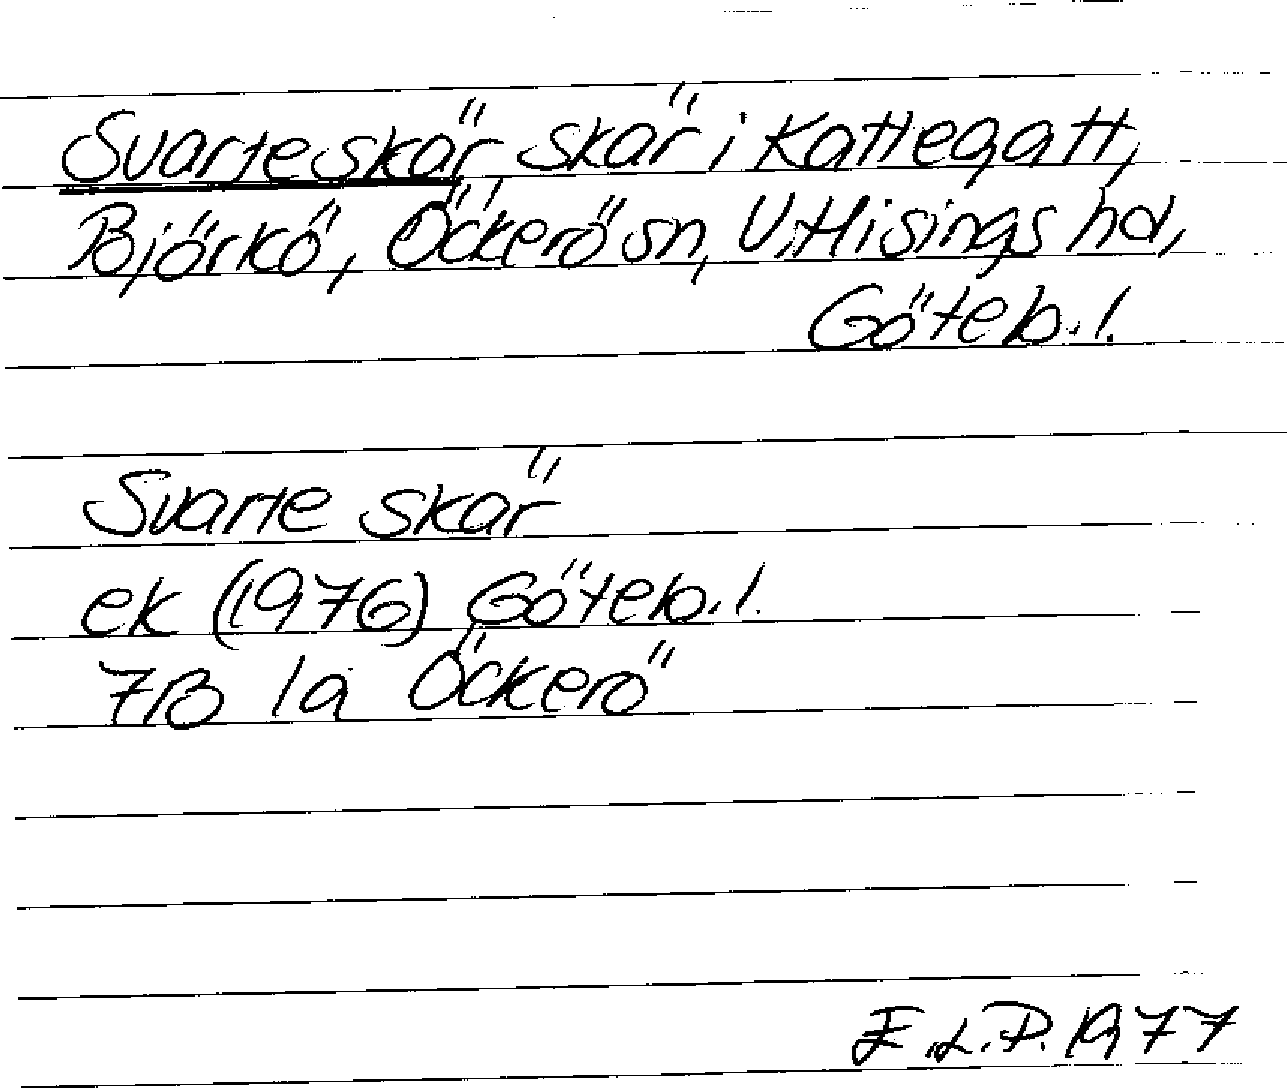 Svarteskär skär i Kattegatt,
Björkö, Öckerö sn, V. Hisings hd,
Göteb. l.
Svarte skär
ek (1976) Göteb. l.
7B 1a Öckerö
E.L.P. 1977